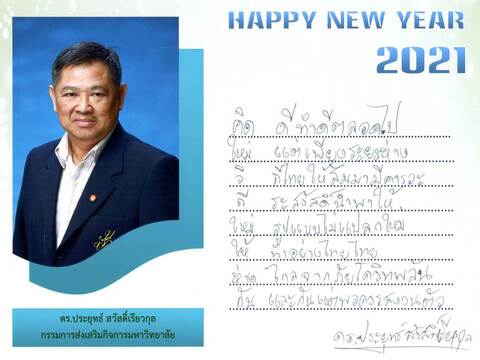 HAPPY NEW YEAR
2021
คิด ดีทำดีตลอดไป
ใหม่ แต่เพียงระยะห่าง
วิ ถีไทยให้สัมมามีคารวะ
ดี
ใหม่ รูปแบบไม่แปลกใหม่
ให้ ทำอย่างไทยไทย
ห่าง ไกลจากภัยโควิทพลัน
กัน และกันแต่พอควรสงวนตัว
ดร.ประยุทธ์ สวัสดิ์เรียวกุล
ดร.ประยุทธ์ สวัสดิ์เรียวกุล
กรรมการส่งเสริมกิจการมหาวิทยาลัย